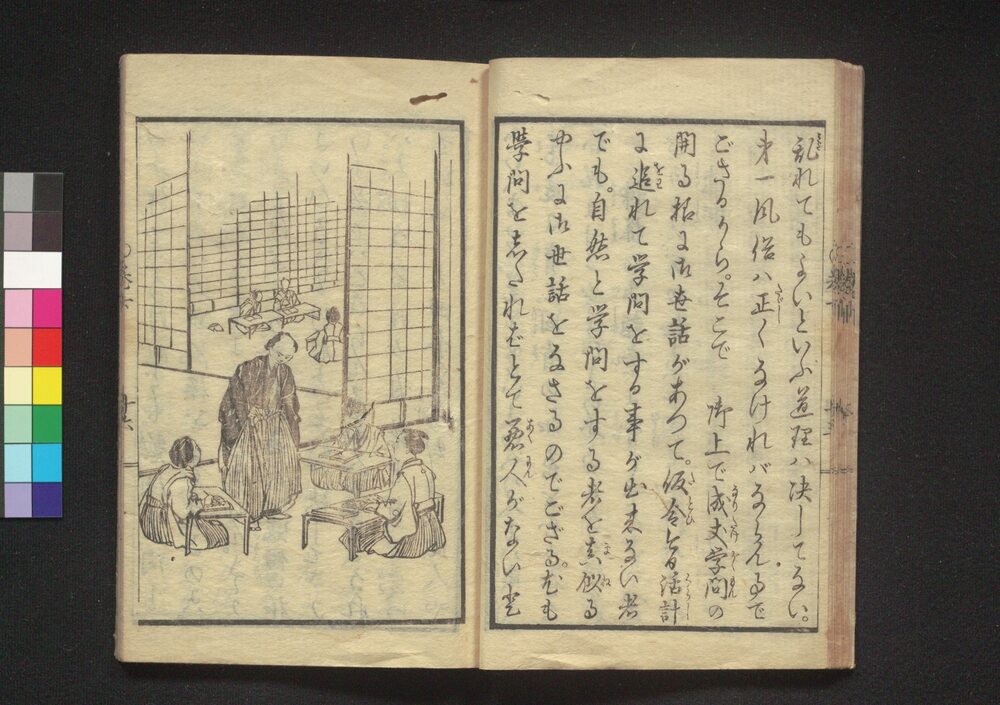 乱れてもよいといふ道理ハ决してない。
第一風俗ハ正しくなけれバならん事で
ござるから。そこで 御上で成丈学問の
開る様に御世話があつて。仮令今日活計
に追れて学問をする事が出来ない者
でも。自然と学問をする者を真似る
やふに御世話をなさるのでござる。尤も
學問を志たれむとて悪人がない